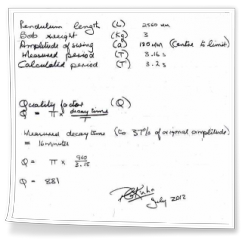 Pendulum length (L) 2560 mm
Bob weight (Kg) 3
Amplitude of swing (a) 180 mm (Centre to limit)
Measured period (T) 3.16 s
Calculated period (T) 3.2 s
Quality factor (Q)
Q = π × decay time / T
Measured decay time (to 37% of original amplitude)
= 16 minutes
Q = π × 960 / 3.16
Q = 881
July 2012